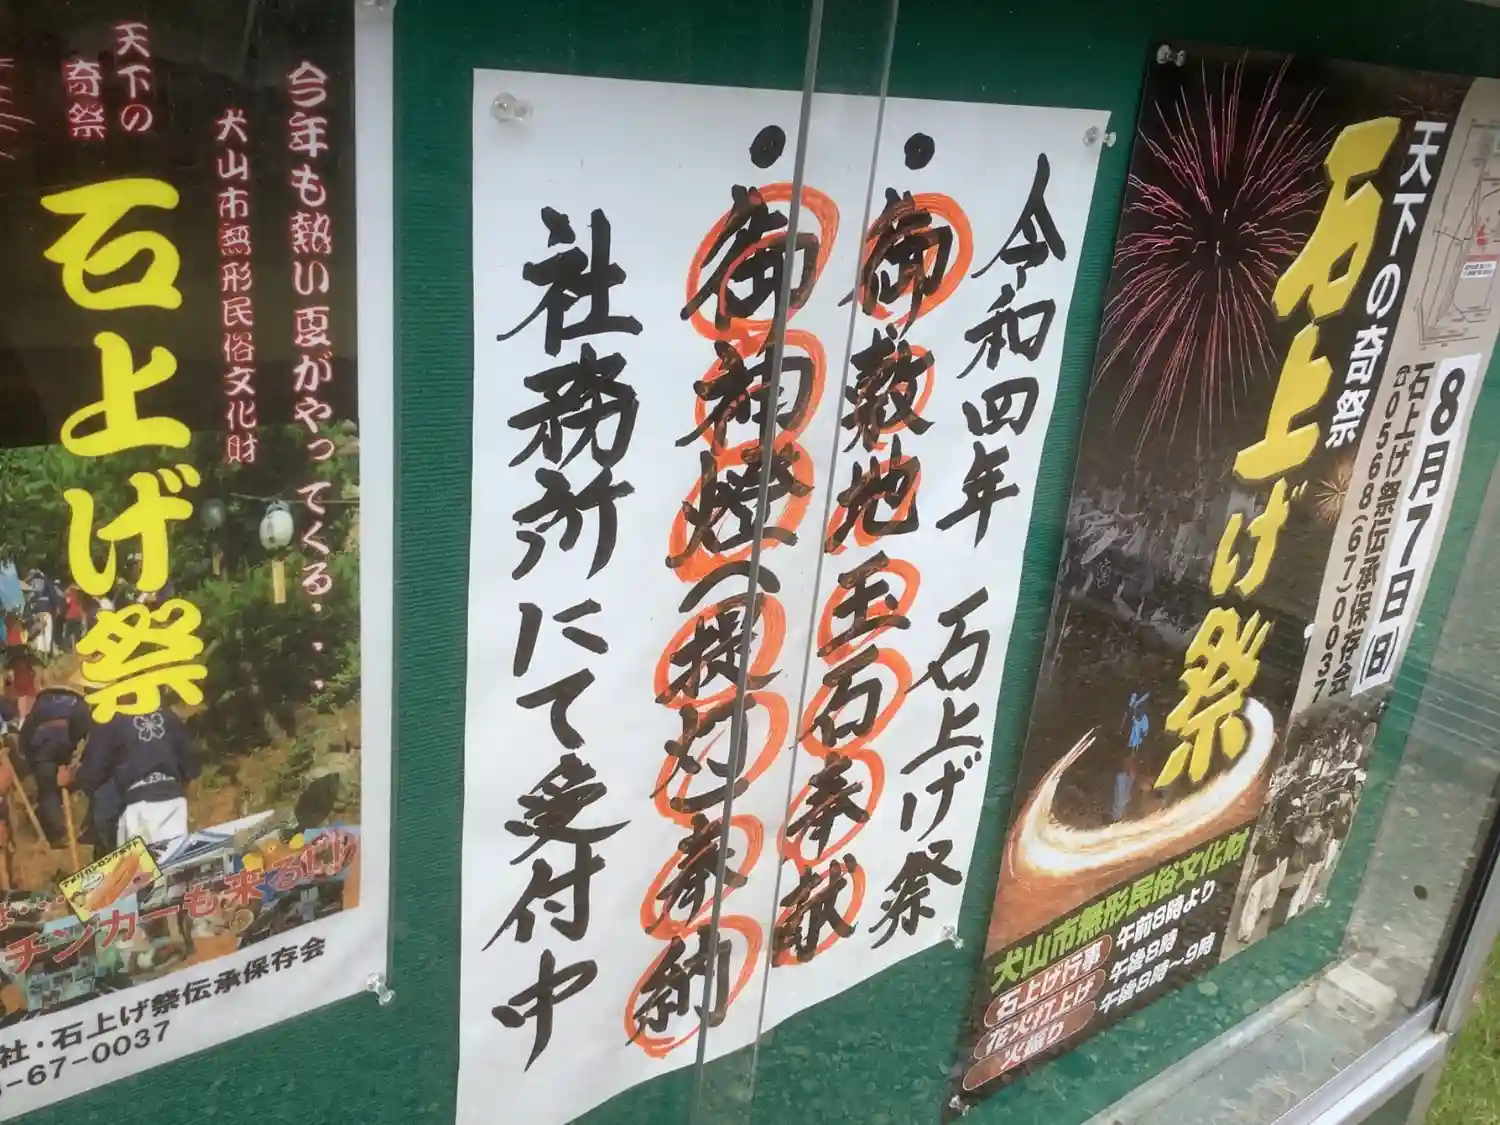 天下の奇祭
石上げ祭
8月7日(日)
石上げ祭伝承保存会
☎0568(67)0037
犬山市無形民俗文化財
石上げ行事 午前8時より
花火打上げ 午後8時
火振り 午後8時〜9時
令和四年 石上げ祭
・御敷地玉石奉献
・御神燈(提灯)奉納
社務所にて受付中
今年も熱い夏がやってくる・・・
犬山市無形民俗文化財
天下の
奇祭
石上げ祭
アメリカンロングポテト
チンカーも来るよ
社・石上げ祭伝承保存会
-67-0037